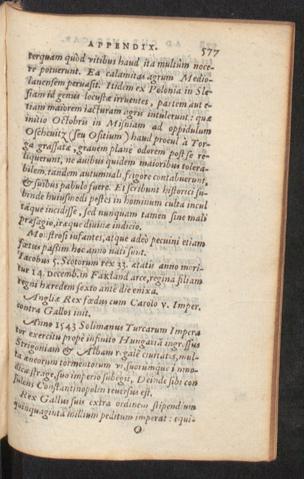 APPENDIX. 577
terquam quòd vitibus haud ita multùm noce-
re potuerunt. Ea calamitas agrum Medio-
lanensem peruasit. Itidem ex Polonia in Sle-
siam id genus locustæ irruentes, partem aut e-
tiam maiorem iacturam agris intulerunt: quæ
initio Octobris in Misniam ad oppidulum
Oschcuitz (seu Ositium) haud procul à Tor-
ga grassatæ, grauem planè odorem post se re-
liquerunt, ne auibus quidem maioribus tolera-
bilem, tandem autumnali frigore contabuerunt,
& suibus pabulo fuere. Et scribunt historici su-
binde huiusmodi pestes in hominum culta incul
táque incidisse, sed nunquam tamen sine mali
præsagio, iræque diuinæ indicio.
Monstrosi infantes, atque adeò pecuini etiam
fœtus passim hoc anno nati sunt.
Iacobus 5. Scotorum rex 33. ætatis anno mori-
tur 14. Decemb. in Fakland arce, regina filiam
regni hæredem sexto antè die enixa.
Angliæ Rex fœdus cum Carolo v. Imper.
contra Gallos init.
Anno 1543 Solimanus Turcarum Impera
tor exercitu propè infinito Hungariā ingressus
Strigoniam & Albam regalē ciuitates, mul-
ta æneorum tormentorum vi, suorumque innu-
dica strage, suo imperio subegit, Deinde sibi con
sulens Constantinopolim reuersus est.
Rex Gallus suis extra ordinem stipendium
quinquaginta millium peditum imperat: equi-